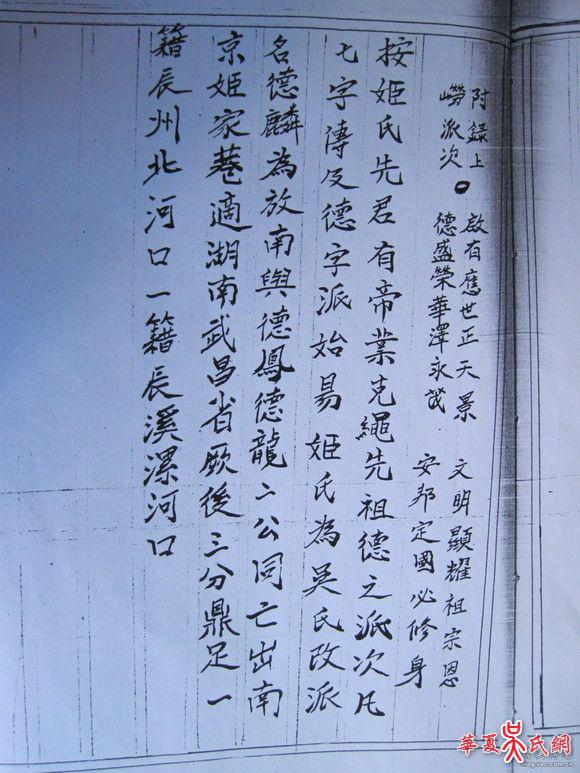 附錄上
嶗派次
啟有應世正天景
德盛榮華澤永茂
文明顯耀祖宗恩
安邦定國必修身
按姬氏先君有帝業克繩先祖德之派次凡
七字傳及德字派始易姬氏為吳氏改派
名德麟為放南與德鳳德龍二公同亡出南
京姬家巷適湖南武昌省厥後三分鼎足一
籍辰州北河口一籍辰溪漯河口
華夏吳氏網